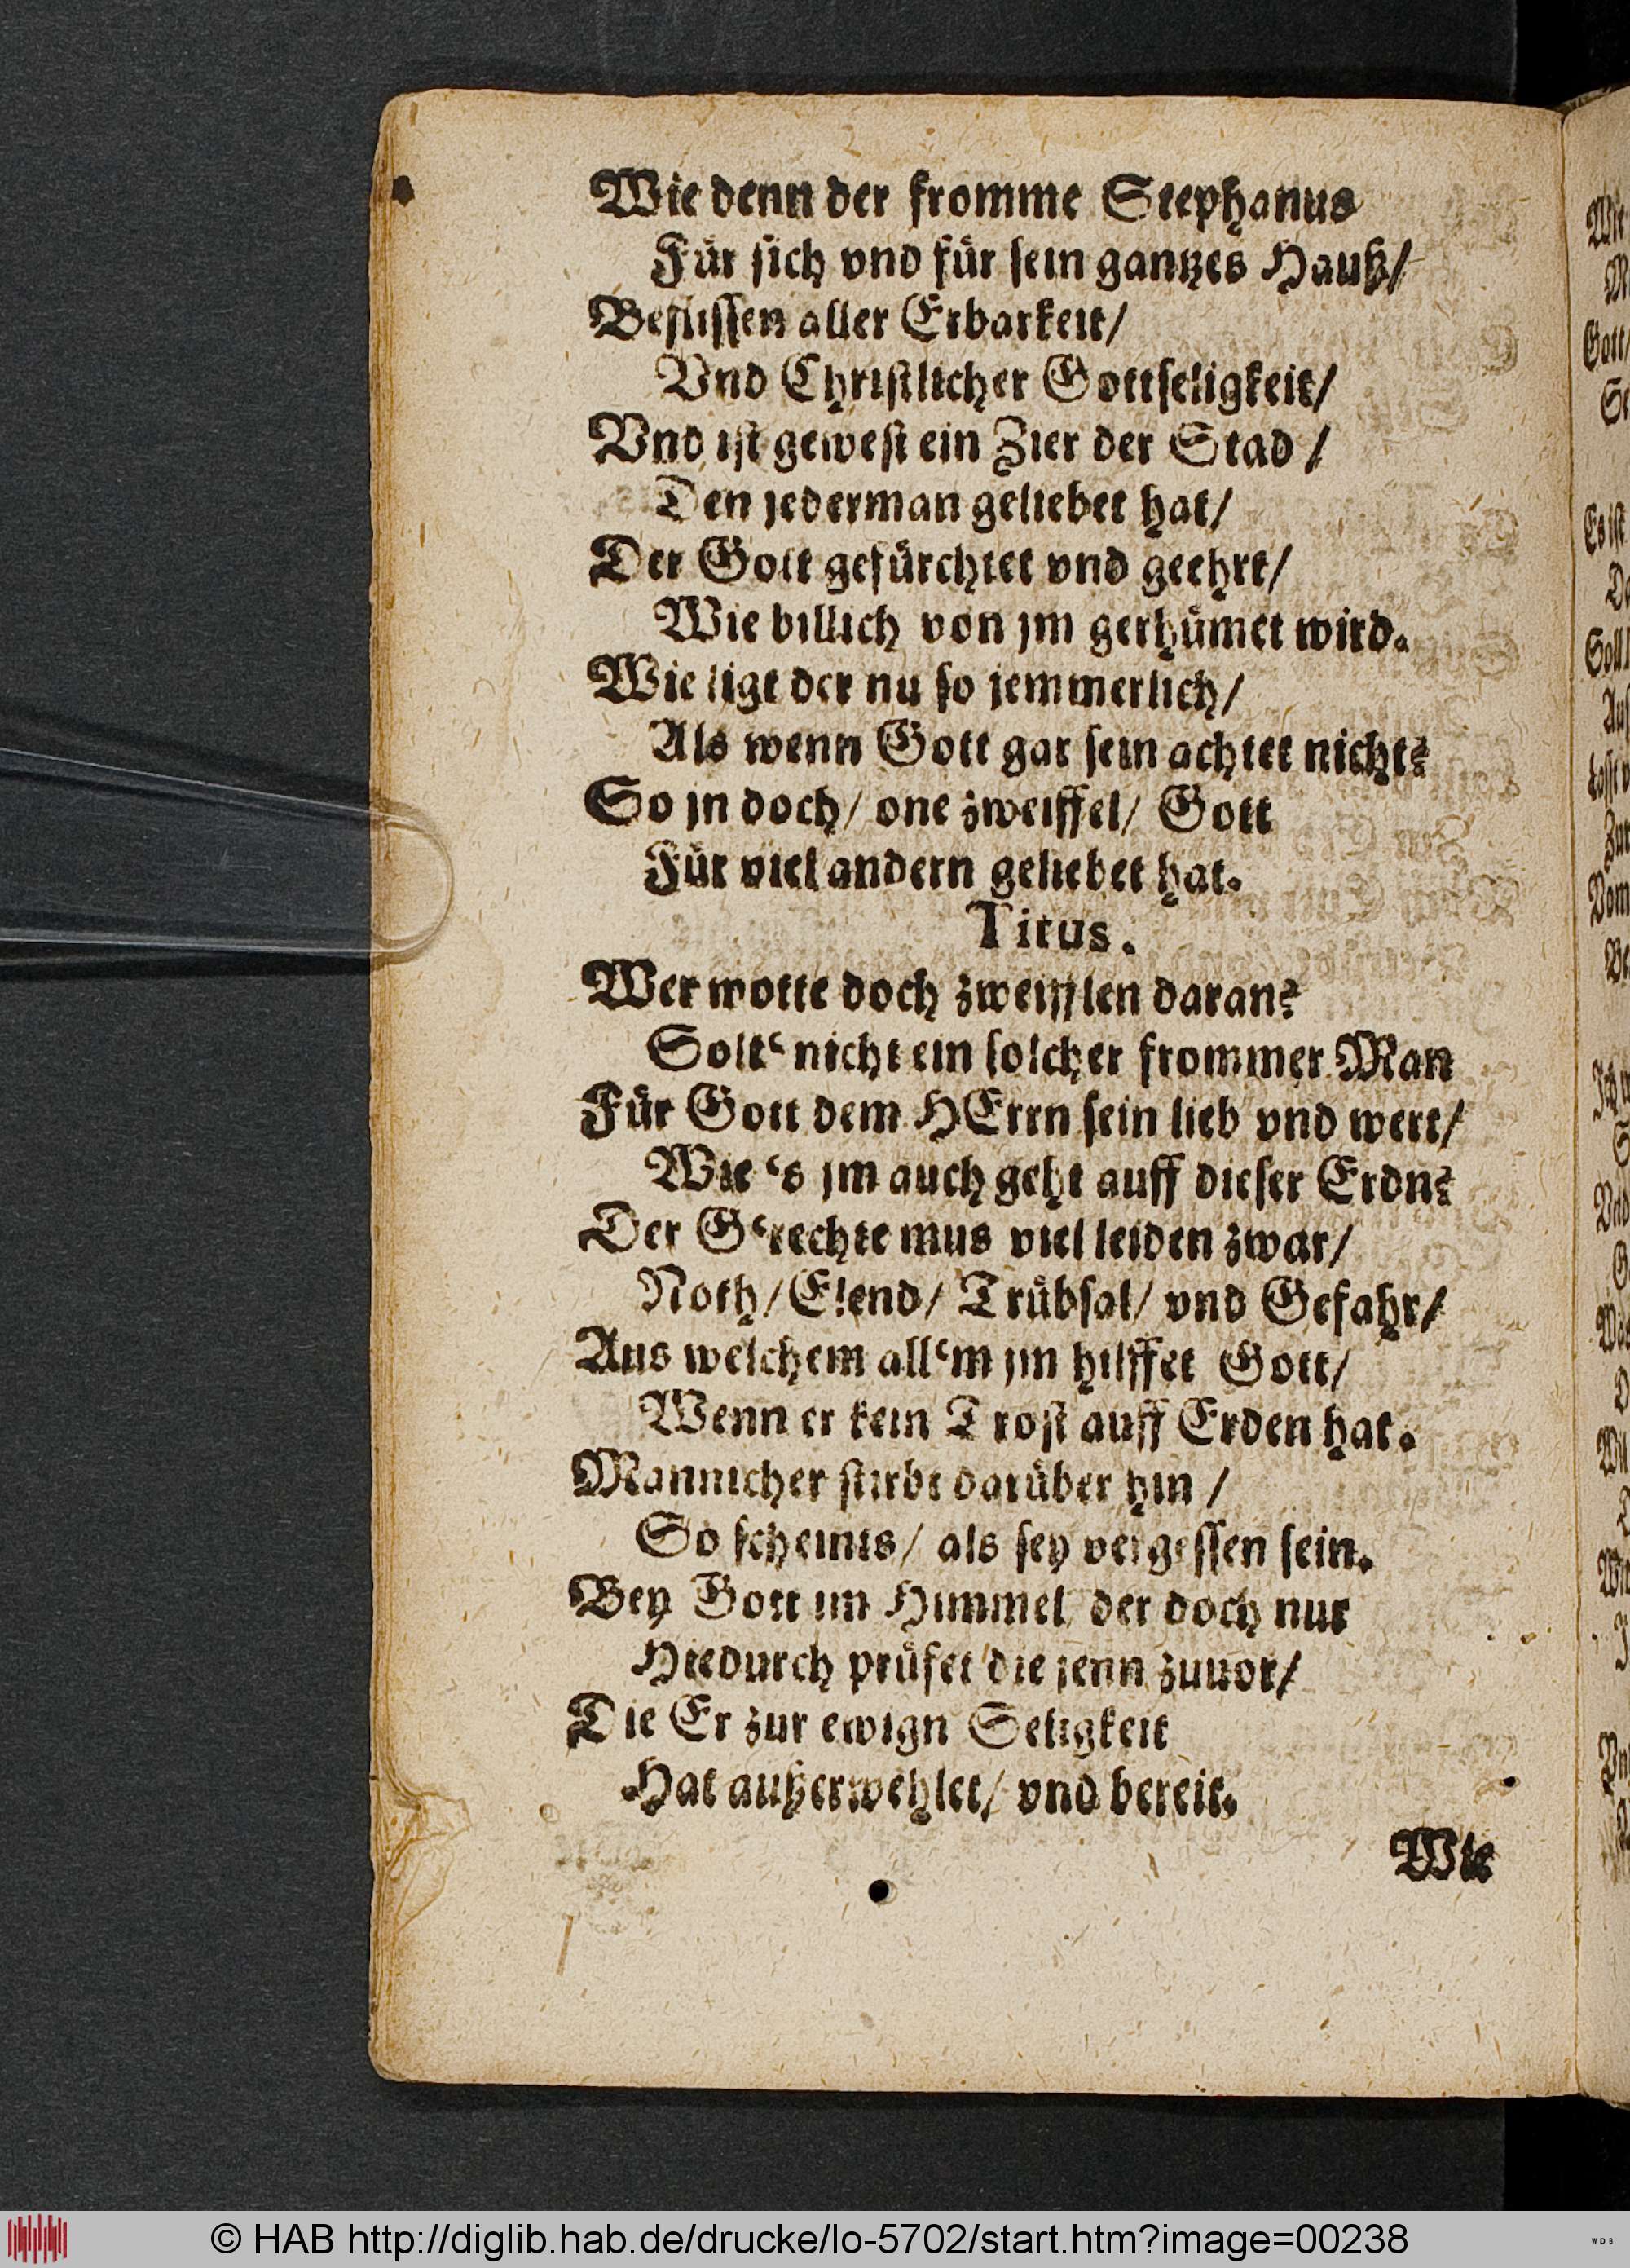 Wie denn der fromme Stephanus
Für sich vnd für sein gantzes Hauß/
Beflissen aller Erbarkeit/
Vnd Christlicher Gottseligkeit/
Vnd ist gewest ein Zier der Stad /
Den jederman geliebet hat/
Der Gott gefürchtet vnd geehrt/
Wie billich von jm gerhümet wird.
Wie ligt der nu so jemmerlich/
Als wenn Gott gar sein achtet nicht?
So jn doch/ one zweiffel/ Gott
Für viel andern geliebet hat.
Titus.
Wer wotte doch zweifflen daran?
Solt‘ nicht ein solcher frommer Man
Für Gott dem HErrn sein lieb vnd wert/
Wie ‘s jm auch geht auff dieser Erdn?
Der G‘rechte mus viel leiden zwar/
Noth/ Elend/ Trübsal/ vnd Gefahr/
Aus welchem all‘m jm hilffet Gott/
Wenn er kein Trost auff Erden hat.
Mannicher stirbt darüber hin /
So scheints/ als sey vergessen sein.
Bey Gott im Himmel der doch nur
Hiedurch prüfet die jenn zuuor/
Die Er zur ewign Seligkeit
Hat außerwehlet/ vnd bereit.
Wie
© HAB http://diglib.hab.de/drucke/lo-5702/start.htm?image=00238
WDB